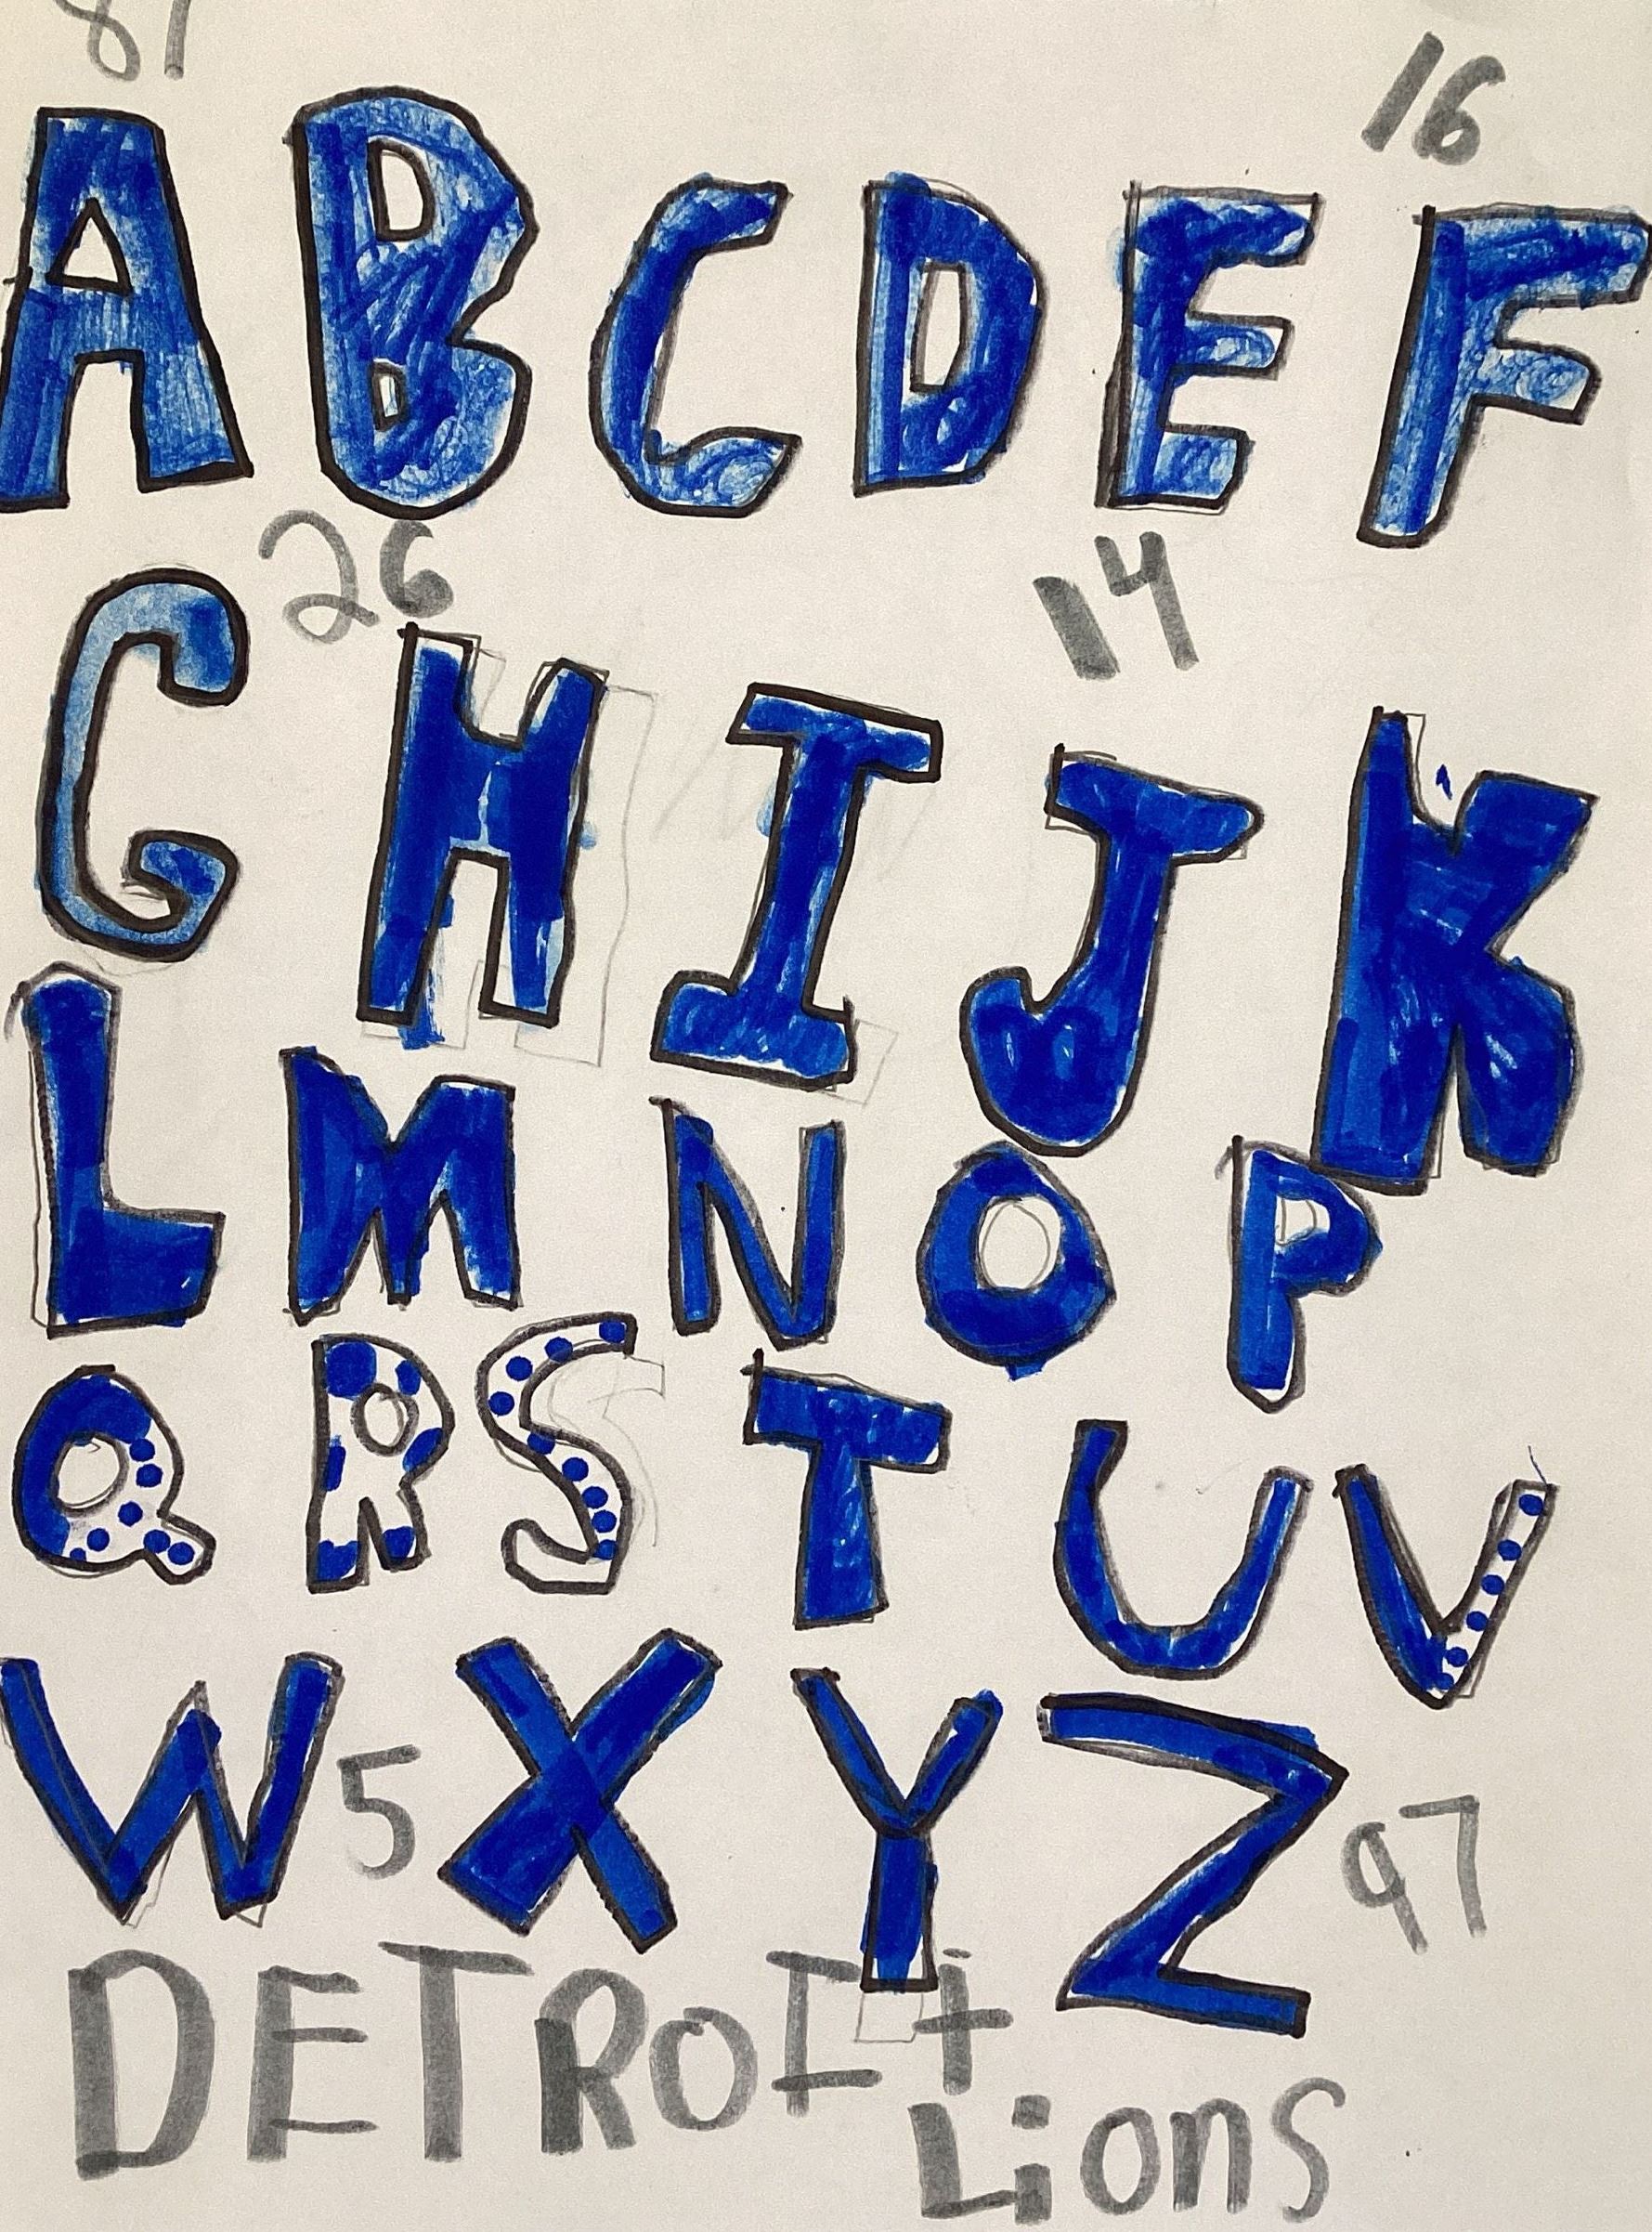 81
16
A B C D E F
26 14
G H I J K
L M N O P
Q R S T U V
W 5 X Y Z 97
DETROIt
Lions